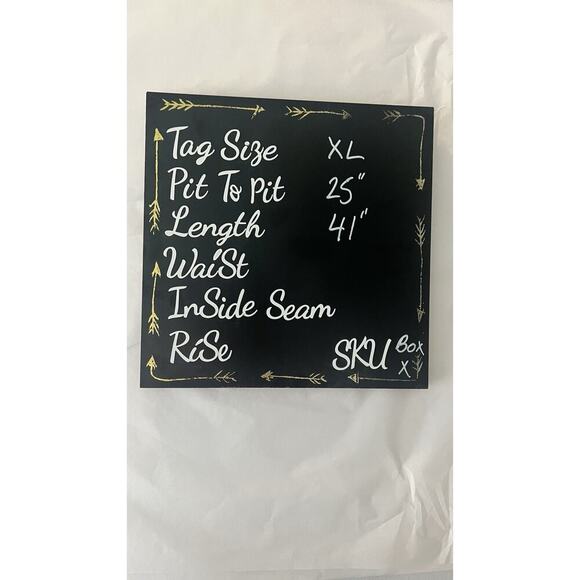 Tag Size XL
Pit To Pit 25"
Length 41"
Waist
Inside Seam
Rise
SKU Box X